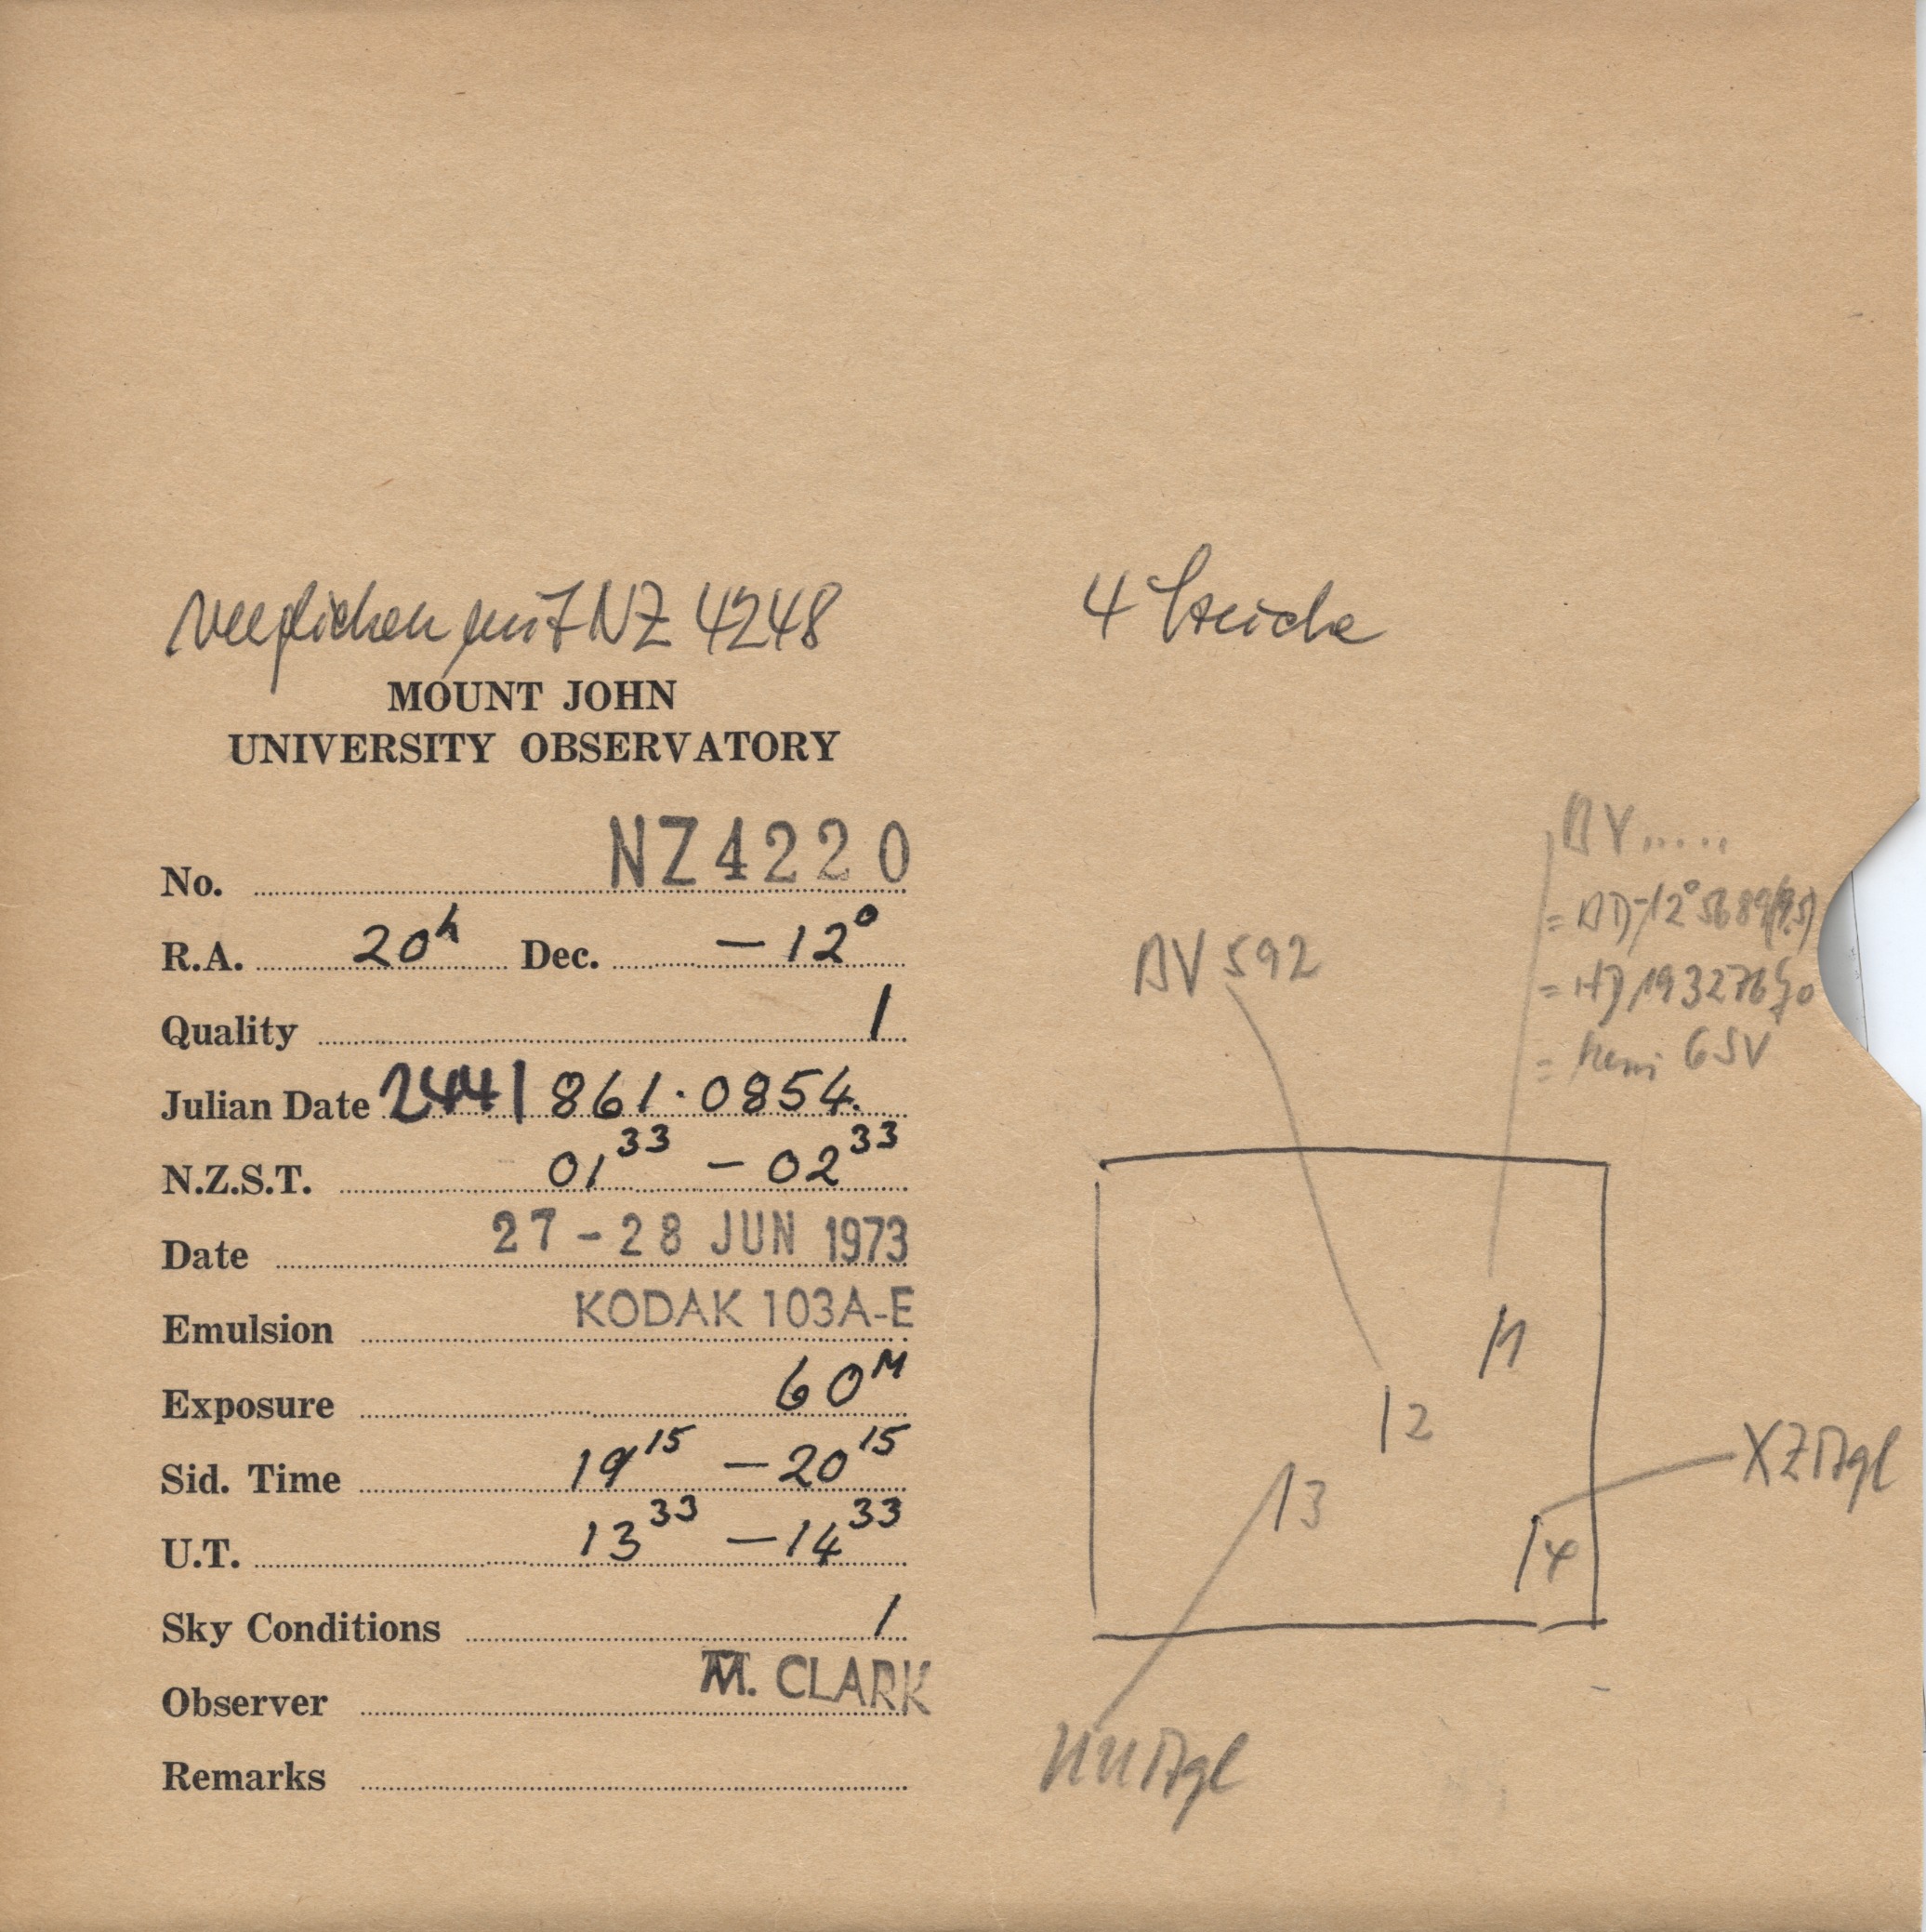 verglichen mit NZ 4248
4 Striche
MOUNT JOHN
UNIVERSITY OBSERVATORY
No. NZ4220
R.A. 20h Dec. – 12°
Quality 1
Julian Date 2441 861.0854
N.Z.S.T. 01 33 – 02 33
Date 27 - 28 JUN 1973
Emulsion KODAK 103A-E
Exposure 60M
Sid. Time 19 15 – 20 15
U.T. 13 33 – 14 33
Sky Conditions 1
Observer M. CLARK
Remarks
BV.....
= BD-12°5689(9.5)
= HD 193276 G0
= kein GSV
BV 592
11
12
13
14
XZ Aql